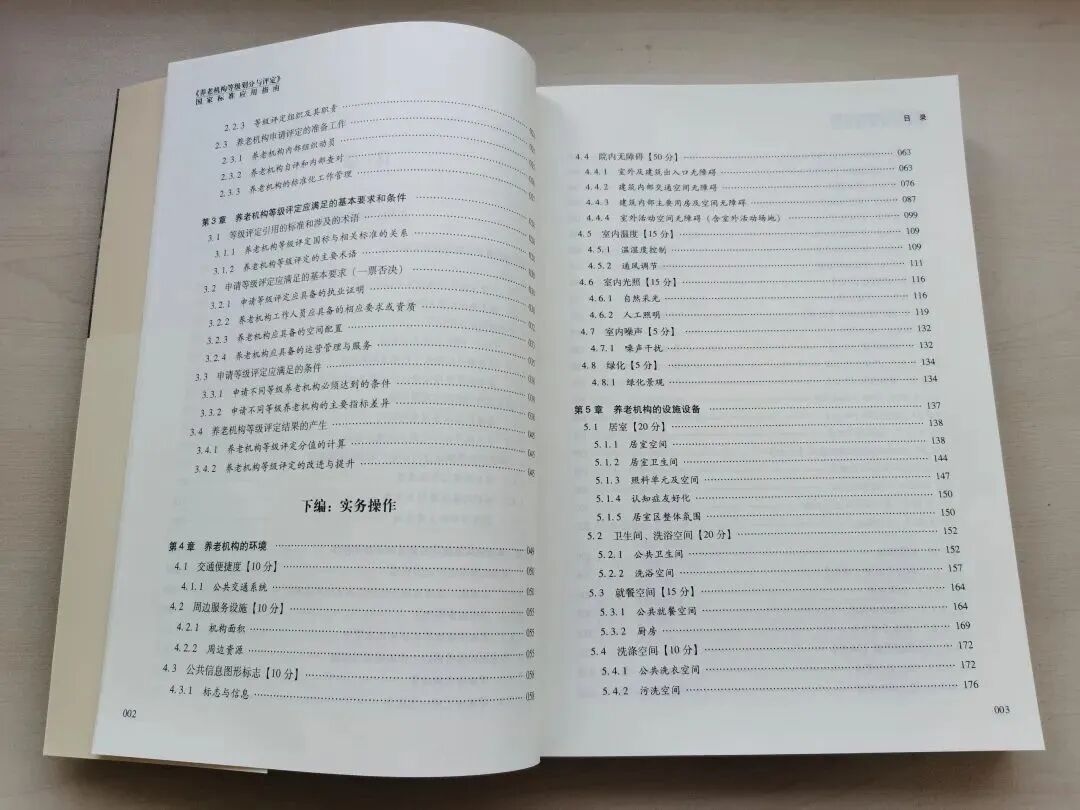 《养老机构等级划分与评定》
国家标准应用指南
2.2.3 等级评定组织及其职责
2.3 养老机构申请评定的准备工作
2.3.1 养老机构内部组织动员
2.3.2 养老机构自评和内部查对
2.3.3 养老机构的标准化工作管理
第3章 养老机构等级评定应满足的基本要求和条件
3.1 等级评定引用的标准和涉及的术语
3.1.1 养老机构等级评定国标与相关标准的关系
3.1.2 养老机构等级评定的主要术语
3.2 申请等级评定应满足的基本要求(一票否决)
3.2.1 申请等级评定应具备的执业证明
3.2.2 养老机构工作人员应具备的相应要求或资质
3.2.3 养老机构应具备的空间配置
3.2.4 养老机构应具备的运营管理与服务
3.3 申请等级评定应满足的条件
3.3.1 申请不同等级养老机构必须达到的条件
3.3.2 申请不同等级养老机构的主要指标差异
3.4 养老机构等级评定结果的产生
3.4.1 养老机构等级评定分值的计算
3.4.2 养老机构等级评定的改进与提升
下编:实务操作
第4章 养老机构的环境
4.1 交通便捷度【10分】
4.1.1 公共交通系统
4.2 周边服务设施【10分】 055
4.2.1 机构面积 055
4.2.2 周边资源 055
4.3 公共信息图形标志【10分】
4.3.1 标志与信息
002
目 录
4.4 院内无障碍【50分】 063
4.4.1 室外及建筑出入口无障碍 063
4.4.2 建筑内部交通空间无障碍 076
4.4.3 建筑内部主要用房及空间无障碍 087
4.4.4 室外活动空间无障碍(含室外活动场地) 099
4.5 室内温度【15分】 109
4.5.1 温湿度控制 109
4.5.2 通风调节 111
4.6 室内光照【15分】 116
4.6.1 自然采光 116
4.6.2 人工照明 119
4.7 室内噪声【5分】 132
4.7.1 噪声干扰 132
4.8 绿化【5分】 134
4.8.1 绿化景观 134
第5章 养老机构的设施设备 137
5.1 居室【20分】 138
5.1.1 居室空间 138
5.1.2 居室卫生间 144
5.1.3 照料单元及空间 147
5.1.4 认知症友好化 150
5.1.5 居室区整体氛围 150
5.2 卫生间、洗浴空间【20分】 152
5.2.1 公共卫生间 152
5.2.2 洗浴空间 157
5.3 就餐空间【15分】 164
5.3.1 公共就餐空间 164
5.3.2 厨房 169
5.4 洗涤空间【10分】 172
5.4.1 公共洗衣空间 172
5.4.2 污洗空间 176
003